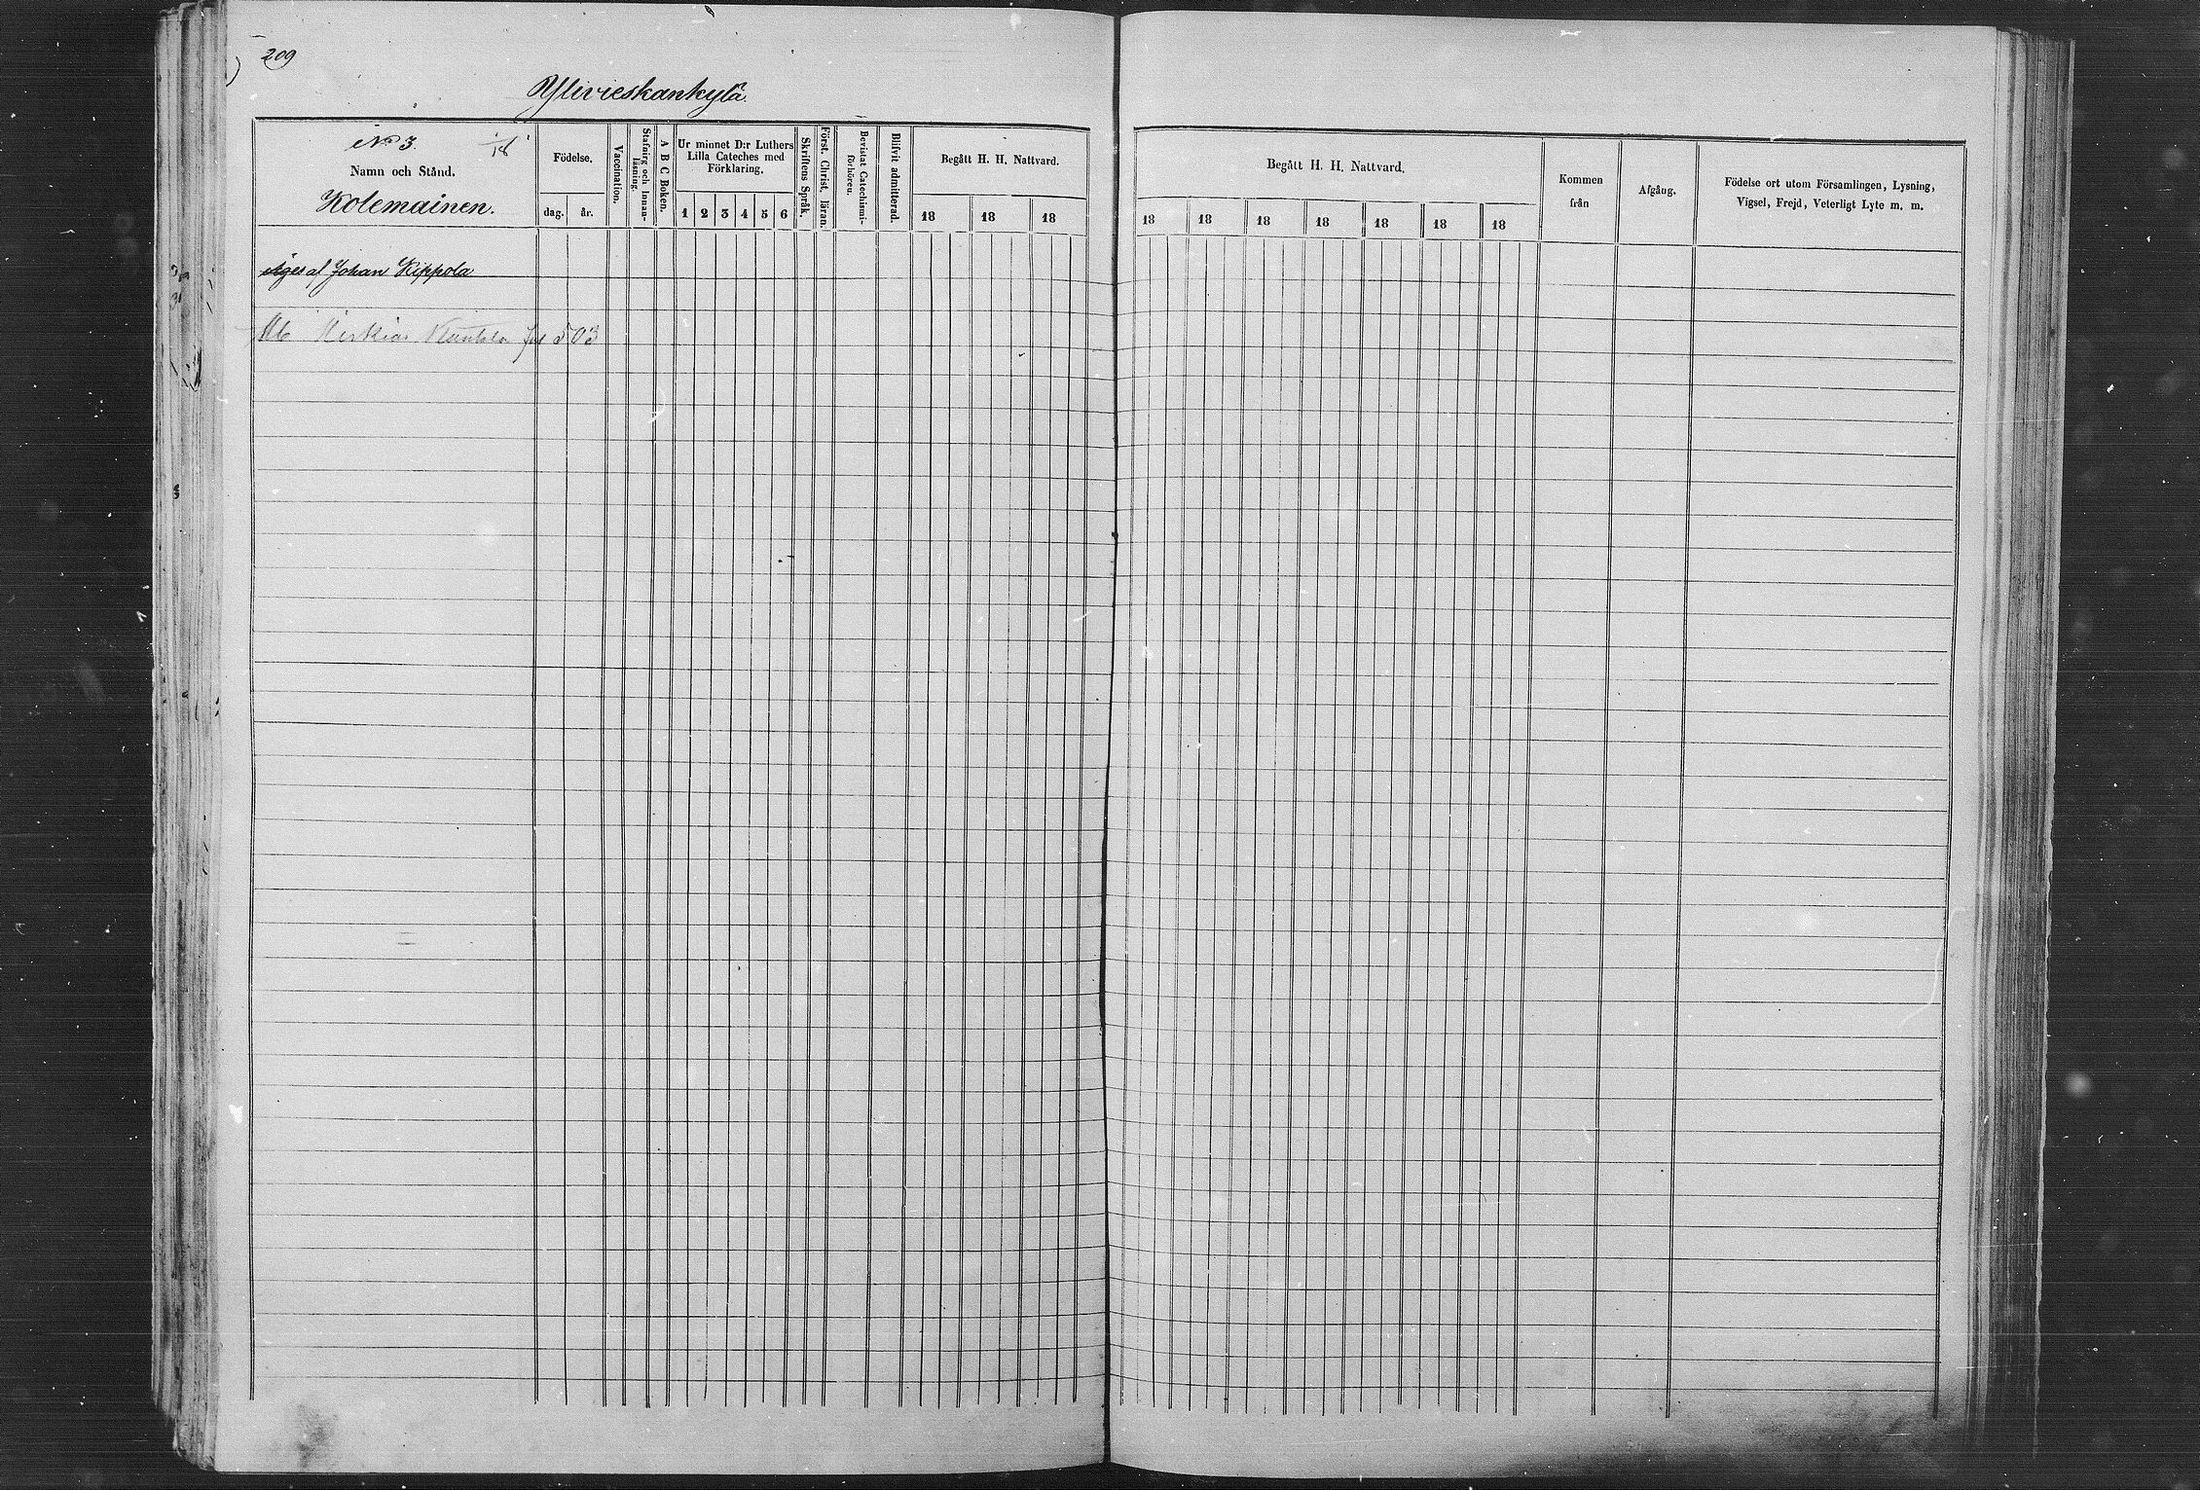 209
Ylivieskankylä.
No 3.
Namn och Stånd.
Kolemainen.
Födelse.
dag. år.
Vaccination.
Stafning och Innanläsning.
A B C Boken.
Ur minnet D:r Luthers
Lilla Cateches med
Förklaring.
1 2 3 4 5 6
Skriftens Språk.
Först. Christ. läran.
Bevistat Catechismiförhören.
Blifvit admitterad.
Begått H. H. Nattvard.
18 18 18
Äges af Johan Kippola
503
Begått H. H. Nattvard.
18 18 18 18 18 18 18
Kommen
från
Afgång.
Födelse ort utom Församlingen, Lysning,
Vigsel, Frejd, Veterligt Lyte m. m.